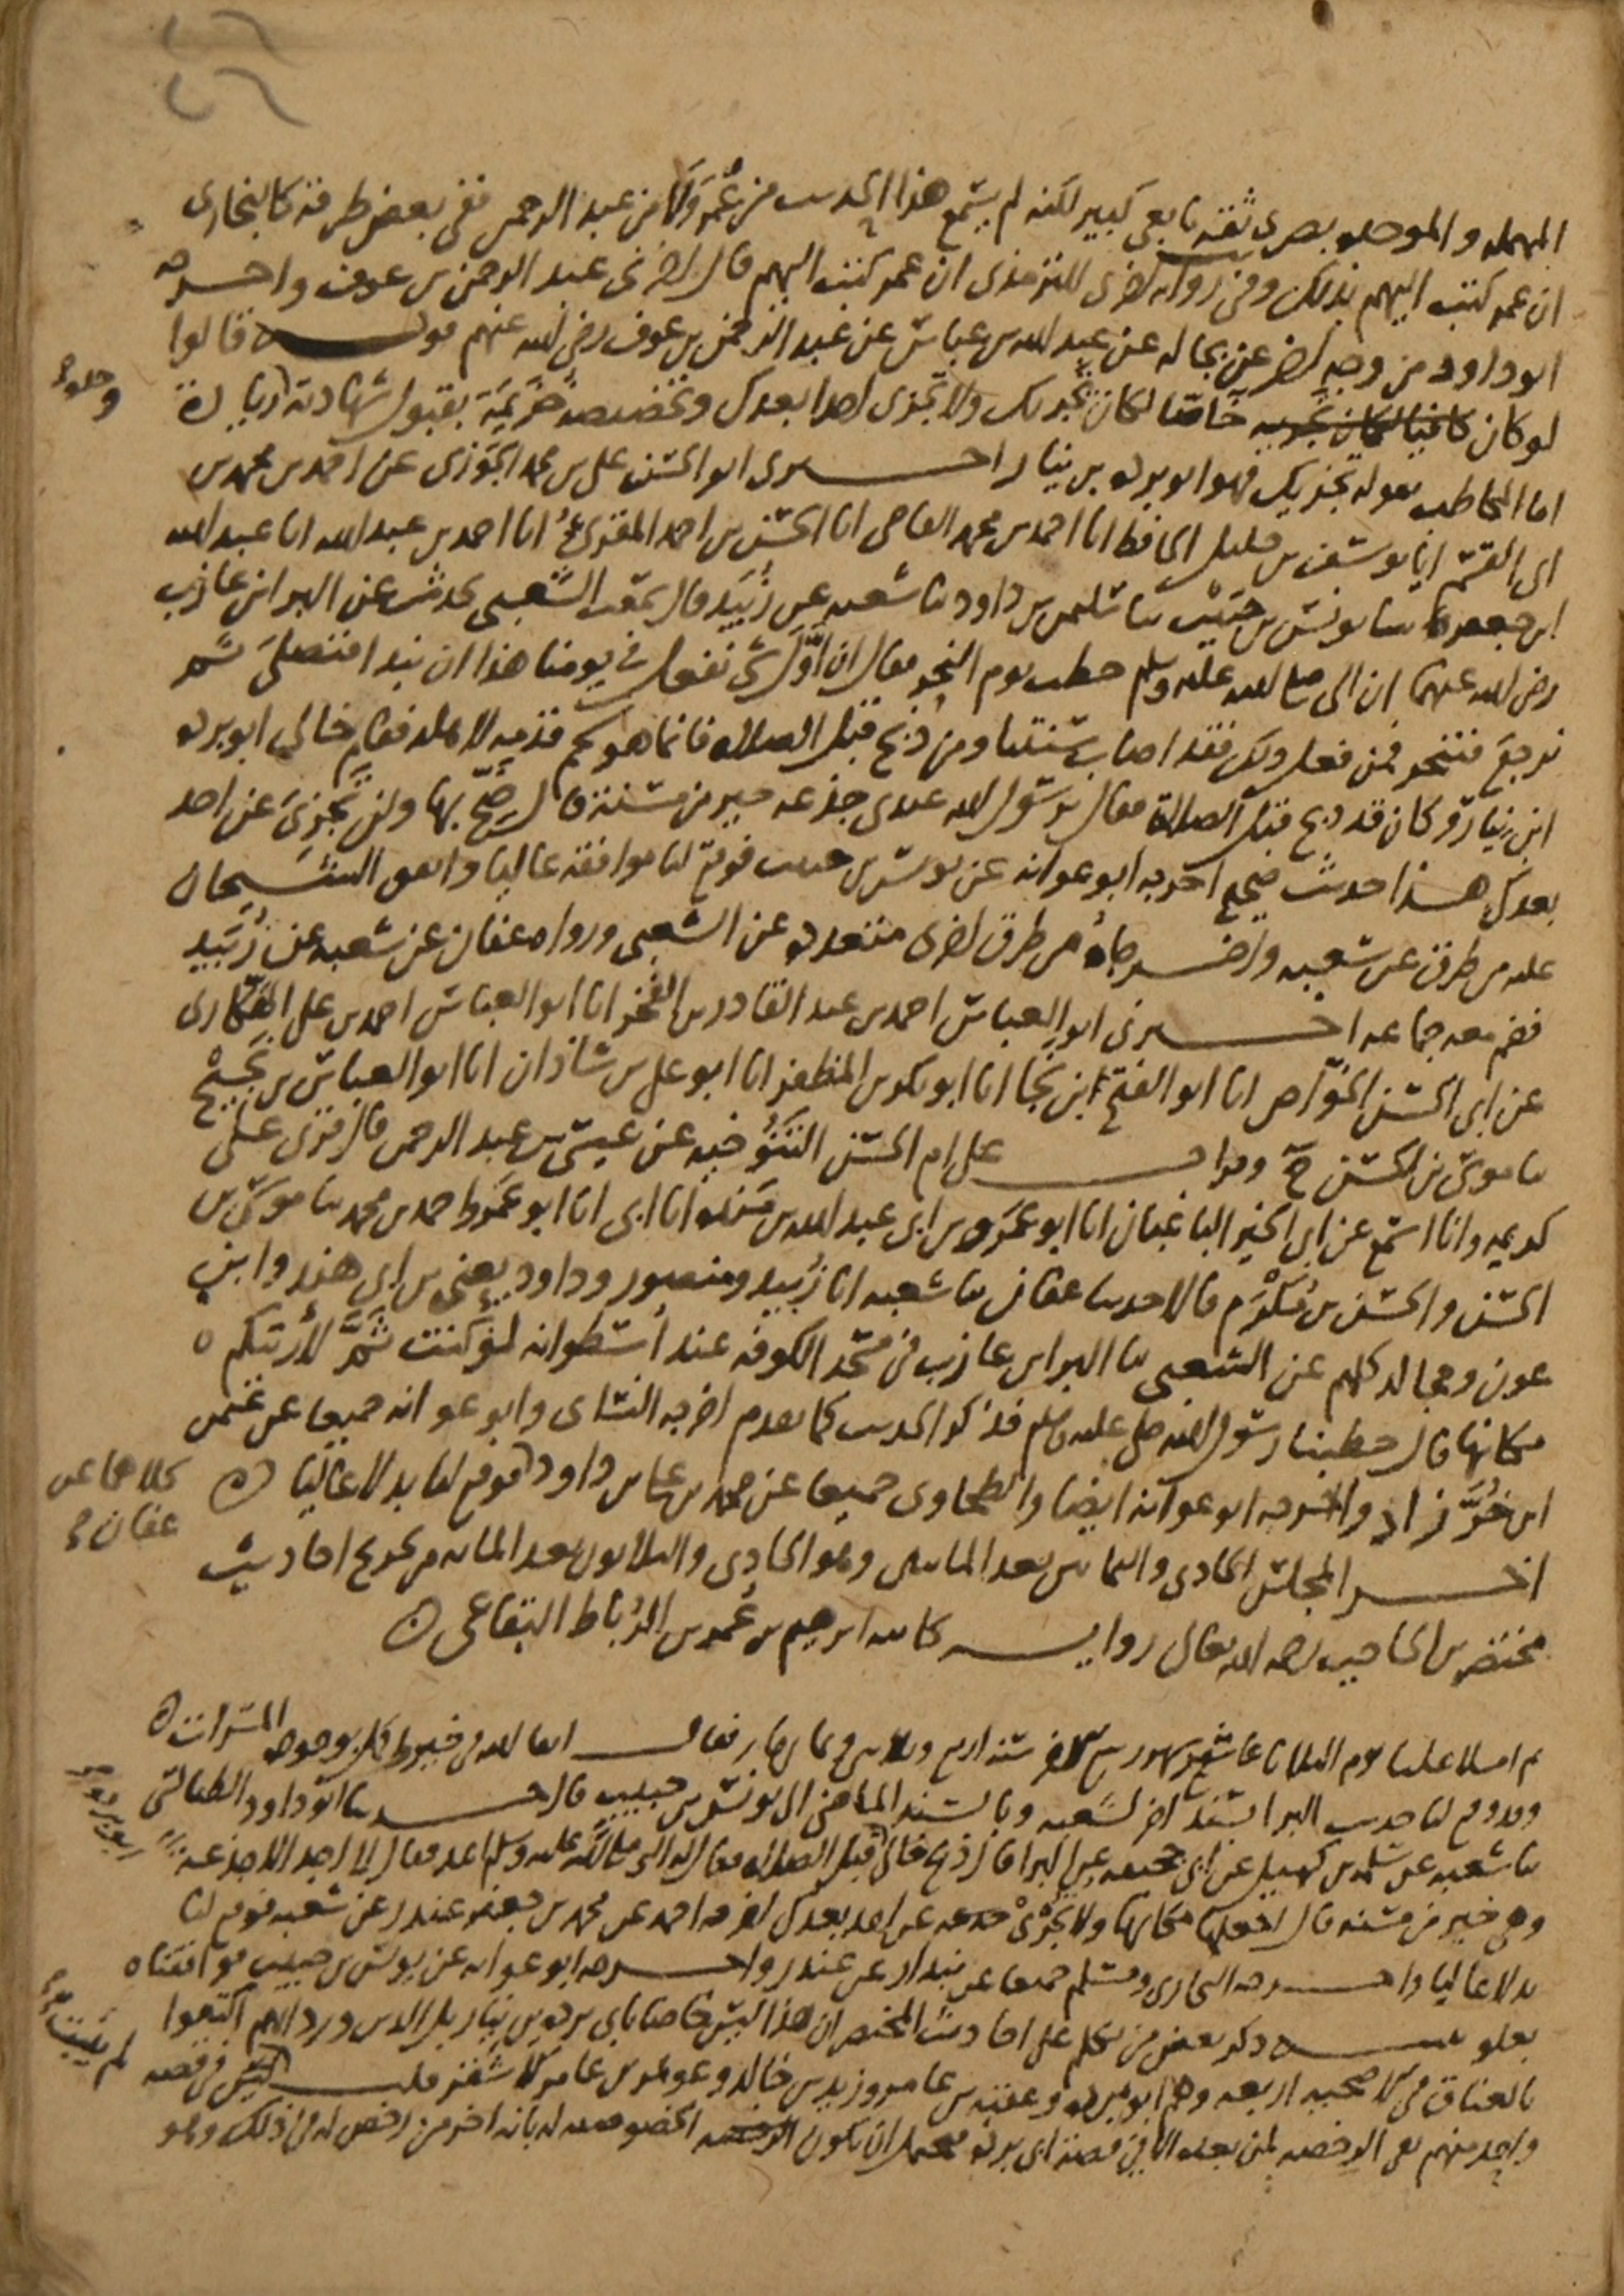 المهمله والموحده بصرى ثقه تابعى كبير لكنه لم يسمع هذا الحديث من عُمر ولا من عبد الرحمن ففى بعض طرقه كالبخارى
ان عمر كتب اليهم بذلك وفى روايه اخرى للترمذى ان عمر كتب اليهم قال اخبرنى عبد الرحمن بن عوف واخرجه
ابو داود من وجه اخر عن بجاله عن عبد الله بن عباس عن عبد الرحمن بن عوف رضى الله عنهم قوله قالوا
لو كان خاصا لكان تجزيك ولا تجزى احدا بعدك وتخصيصه خزيمة بقبول شهادته زيادة
وحده
اما المخاطب بقوله تجزيك فهو ابو برده بن نيار اخبرنى ابو الحسن على بن محمد الجوزى عن احمد بن محمد بن
ابى القسم انا يوسف بن خليل الحافظ انا احمد بن محمد القاضى انا الحسن بن احمد المقرئ انا احمد بن عبد الله انا عبد الله
ابن جعفر ثنا يونس بن حبيب ثنا سليمن بن داود ثنا شعبه عن زُبَيد قال سمعت الشعبى يحدث عن البراء بن عازب
رضى الله عنهما ان النبى صلى الله عليه وسلم خطب يوم النحر فقال ان اوّل شئ نفعل فى يومنا هذا ان نبدا فنصلى ثم
نرجع فننحر فمن فعل ذلك فقد اصاب سنتنا ومن ذبح قبل الصلاة فانما هو لحم قدمه لاهله فقام خالى ابو برده
ابن نيار وكان قد ذبح قبل الصلاة فقال يرسول الله عندى جذعه خير من مسنة قال ضحّ بها ولن تجزئ عن احد
بعدك هذا حديث صحيح اخرجه ابو عوانه عن يونس بن حبيب فوقع لنا موافقه عاليا واتفق الشيخان
عليه من طرق عن شعبه واخرجاه من طرق اخرى متعدده عن الشعبى ورواه عفان عن شعبه عن زُبَيد
فضم معه جماعه اخبرنى ابو العباس احمد بن عبد القادر بن الفخر انا ابو العباس احمد بن على الهكارى
عن ابى الحسن الخوّاص انا ابو الفتح ابن نجا انا ابو بكر بن المظفر انا ابو على بن شاذان انا ابو العباس بن نَجيح
ثنا موسى بن الحسن ح وقرات على ام الحسن التنوخيه عن عيسى بن عبد الرحمن قال قرئ على
كريمه وانا اسمع عن ابى الخير الباغبان انا ابو عمرو بن ابى عبد الله بن مَنده انا ابى انا ابو عَمرو احمد بن محمد ثنا موسى بن
الحسن والحسن بن مُكْرَم قالا حدثنا عفان ثنا شعبه انا زُبيد ومنصور وداود يعنى بن ابى هند وابن
عون ومجالد كلهم عن الشعبى ثنا البراء بن عازب فى مسجد الكوفه عند أسطوانه لو كنت ثَمَّ لأريتكم
مكانها قال خطبنا رسول الله صلى الله عليه وسلم فذكر الحديث كما تقدم اخرجه النسائى وابو عوانه جميعا عن عثمن
ابن خُرَّزاذ واخرجه ابو عوانه ايضا والطحاوى جميعا عن محمد بن على بن داود فوقع لنا بدلا عاليا
كلاهما عن
عفان
اخر المجلس الحادى والثمانين بعد المايتين وهو الحادى والثلاثون بعد المائه من تخريج احاديث
مختصر بن الحاجب رحمه الله تعالى روايه كاتبه ابرهيم بن عُمر بن الرُباط البقاعى

ثم املى علينا يوم الثلاثا عاشر شهر ربيع الاخر سنه اربع وثلاثين وثمان مايه فقال
وقد وقع لنا حديث البراء بسند اخر لشعبه وبالسند الماضى الى يونس بن حبيب قال حدثنا ابو داود الطيالسى
ثنا شعبه عن سلمه بن كهيل عن ابى جحيفه عن البراء قال ذبح خالى قبل الصلاة فقال له النبى صلى الله عليه وسلم اعد فقال لا اجد الا جذعه
ابو برده
وهى خير من مسنه قال اجعلها مكانها ولا تجزئ جذعه عن احد بعدك اخرجه احمد عن محمد بن جعفر غندر عن شعبه فوقع لنا
بدلا عاليا واخرجه البخارى ومسلم جميعا عن بندار عن غندر واخرجه ابو عوانه عن يونس بن حبيب فوافقناه
بعلو ذكر بعض من تكلم على احاديث المختصر ان هذا ليس خاصا بابى برده بن نيار بل الذين ورد انهم اكتفوا
بالعناق فى الاضحيه اربعه وهم ابو برده وعقبه بن عامر وزيد بن خالد وعويمر بن عامر بن اشقر قلت ليس فى قصه
لم يثبت
واحد منهم نفى الرخصه لمن بعده الا فى قصة ابى برده فيحتمل ان تكون الخصوصيه له بانه اخر من رخص له فى ذلك وهو